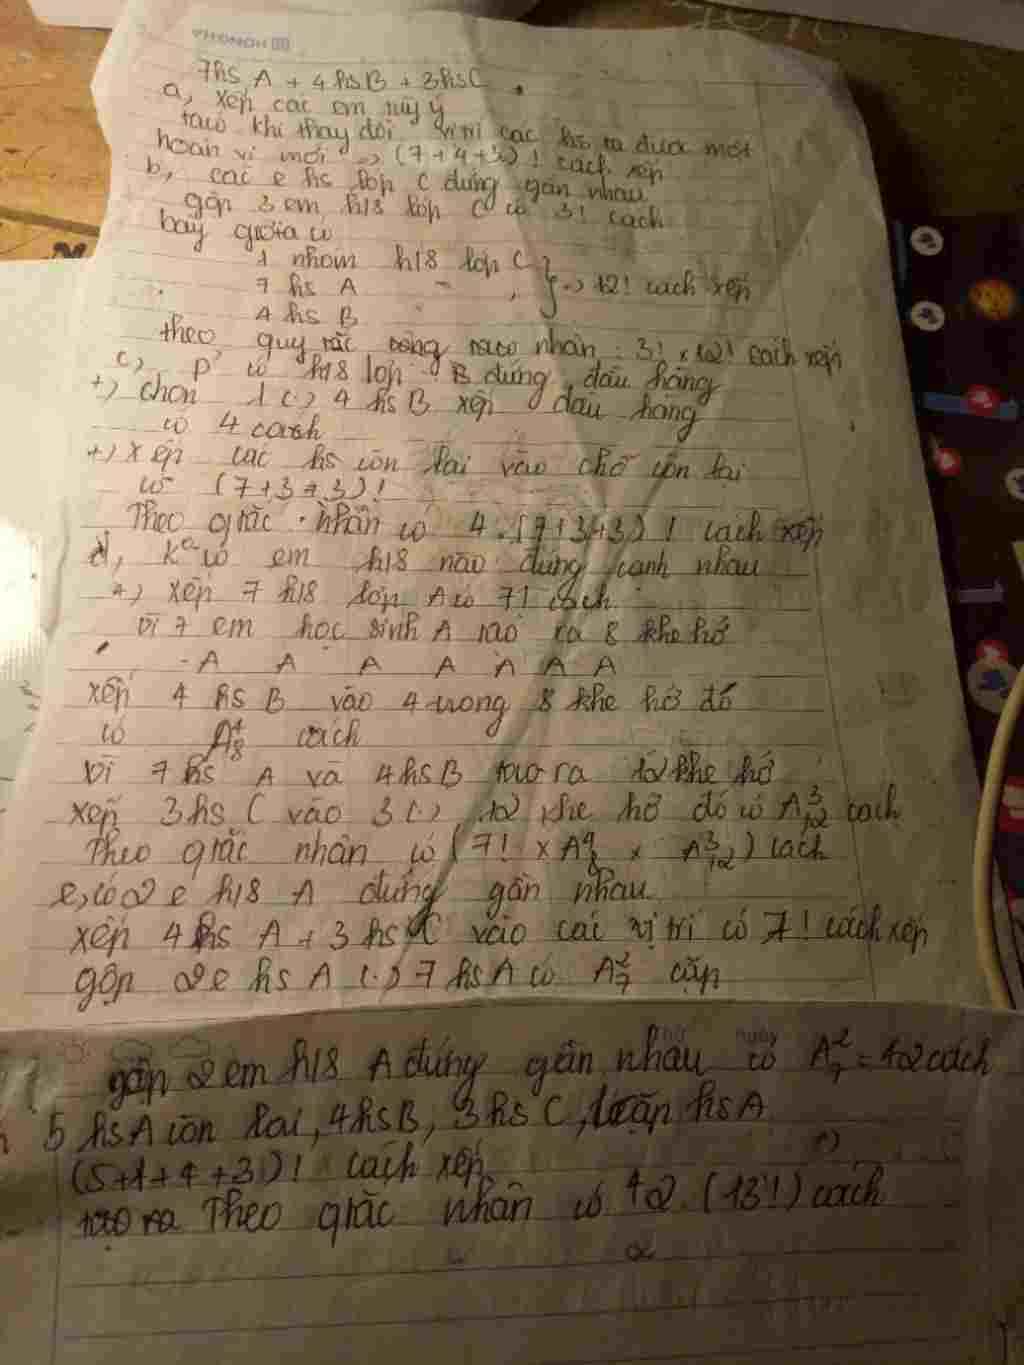 HONGHA
7hs A + 4hsB + 3hsC
a, xếp các em tùy ý
khi thay đổi vị trí các hs ta được một
hoán vị mới => (7+4+3)! cách xếp
b, các e hs lớp C đứng gần nhau
gộp 3 em h/s lớp C có 3! cách
bây giờ ta có
1 nhóm h/s lớp C
7 hs A } => 12! cách xếp
4 hs B
theo quy tắc nhân : 3! x 12! cách xếp
c, có h/s lớp B đứng đầu hàng
+) chọn 1 (.) 4 hsB xếp đầu hàng
có 4 cách
+) xếp các hs còn lại vào chỗ còn lại
có (7+3+3)!
Theo qtắc nhân có 4.(7+3+3)! cách xếp
d, k0 có em h/s nào đứng cạnh nhau
+) xếp 7 h/s lớp A có 7! cách
vì 7 em học sinh A tạo ra 8 khe hở
- A A A A A A A
xếp 4 hs B vào 4 trong 8 khe hở đó
có A⁴₈ cách
vì 7 hs A và 4 hsB tạo ra 12 khe hở
xếp 3hs C vào 3 (.) 12 khe hở đó có A³₁₂ cách
Theo qtắc nhân có (7! x A⁴₈ x A³₁₂) cách
e, có 2 e h/s A đứng gần nhau
xếp 4 hs A + 3 hs C vào các vị trí có 7! cách xếp
gộp 2e hs A (.) 7 hs A có A²₇ cặp
ngày
gộp 2 em h/s A đứng gần nhau có A²₇ = 42 cách
5 hsA còn lại, 4hsB, 3hsC, 1 cặp hsA
(5+1+4+3)! cách xếp
tạo ra Theo qtắc nhân có 42.(13!) cách